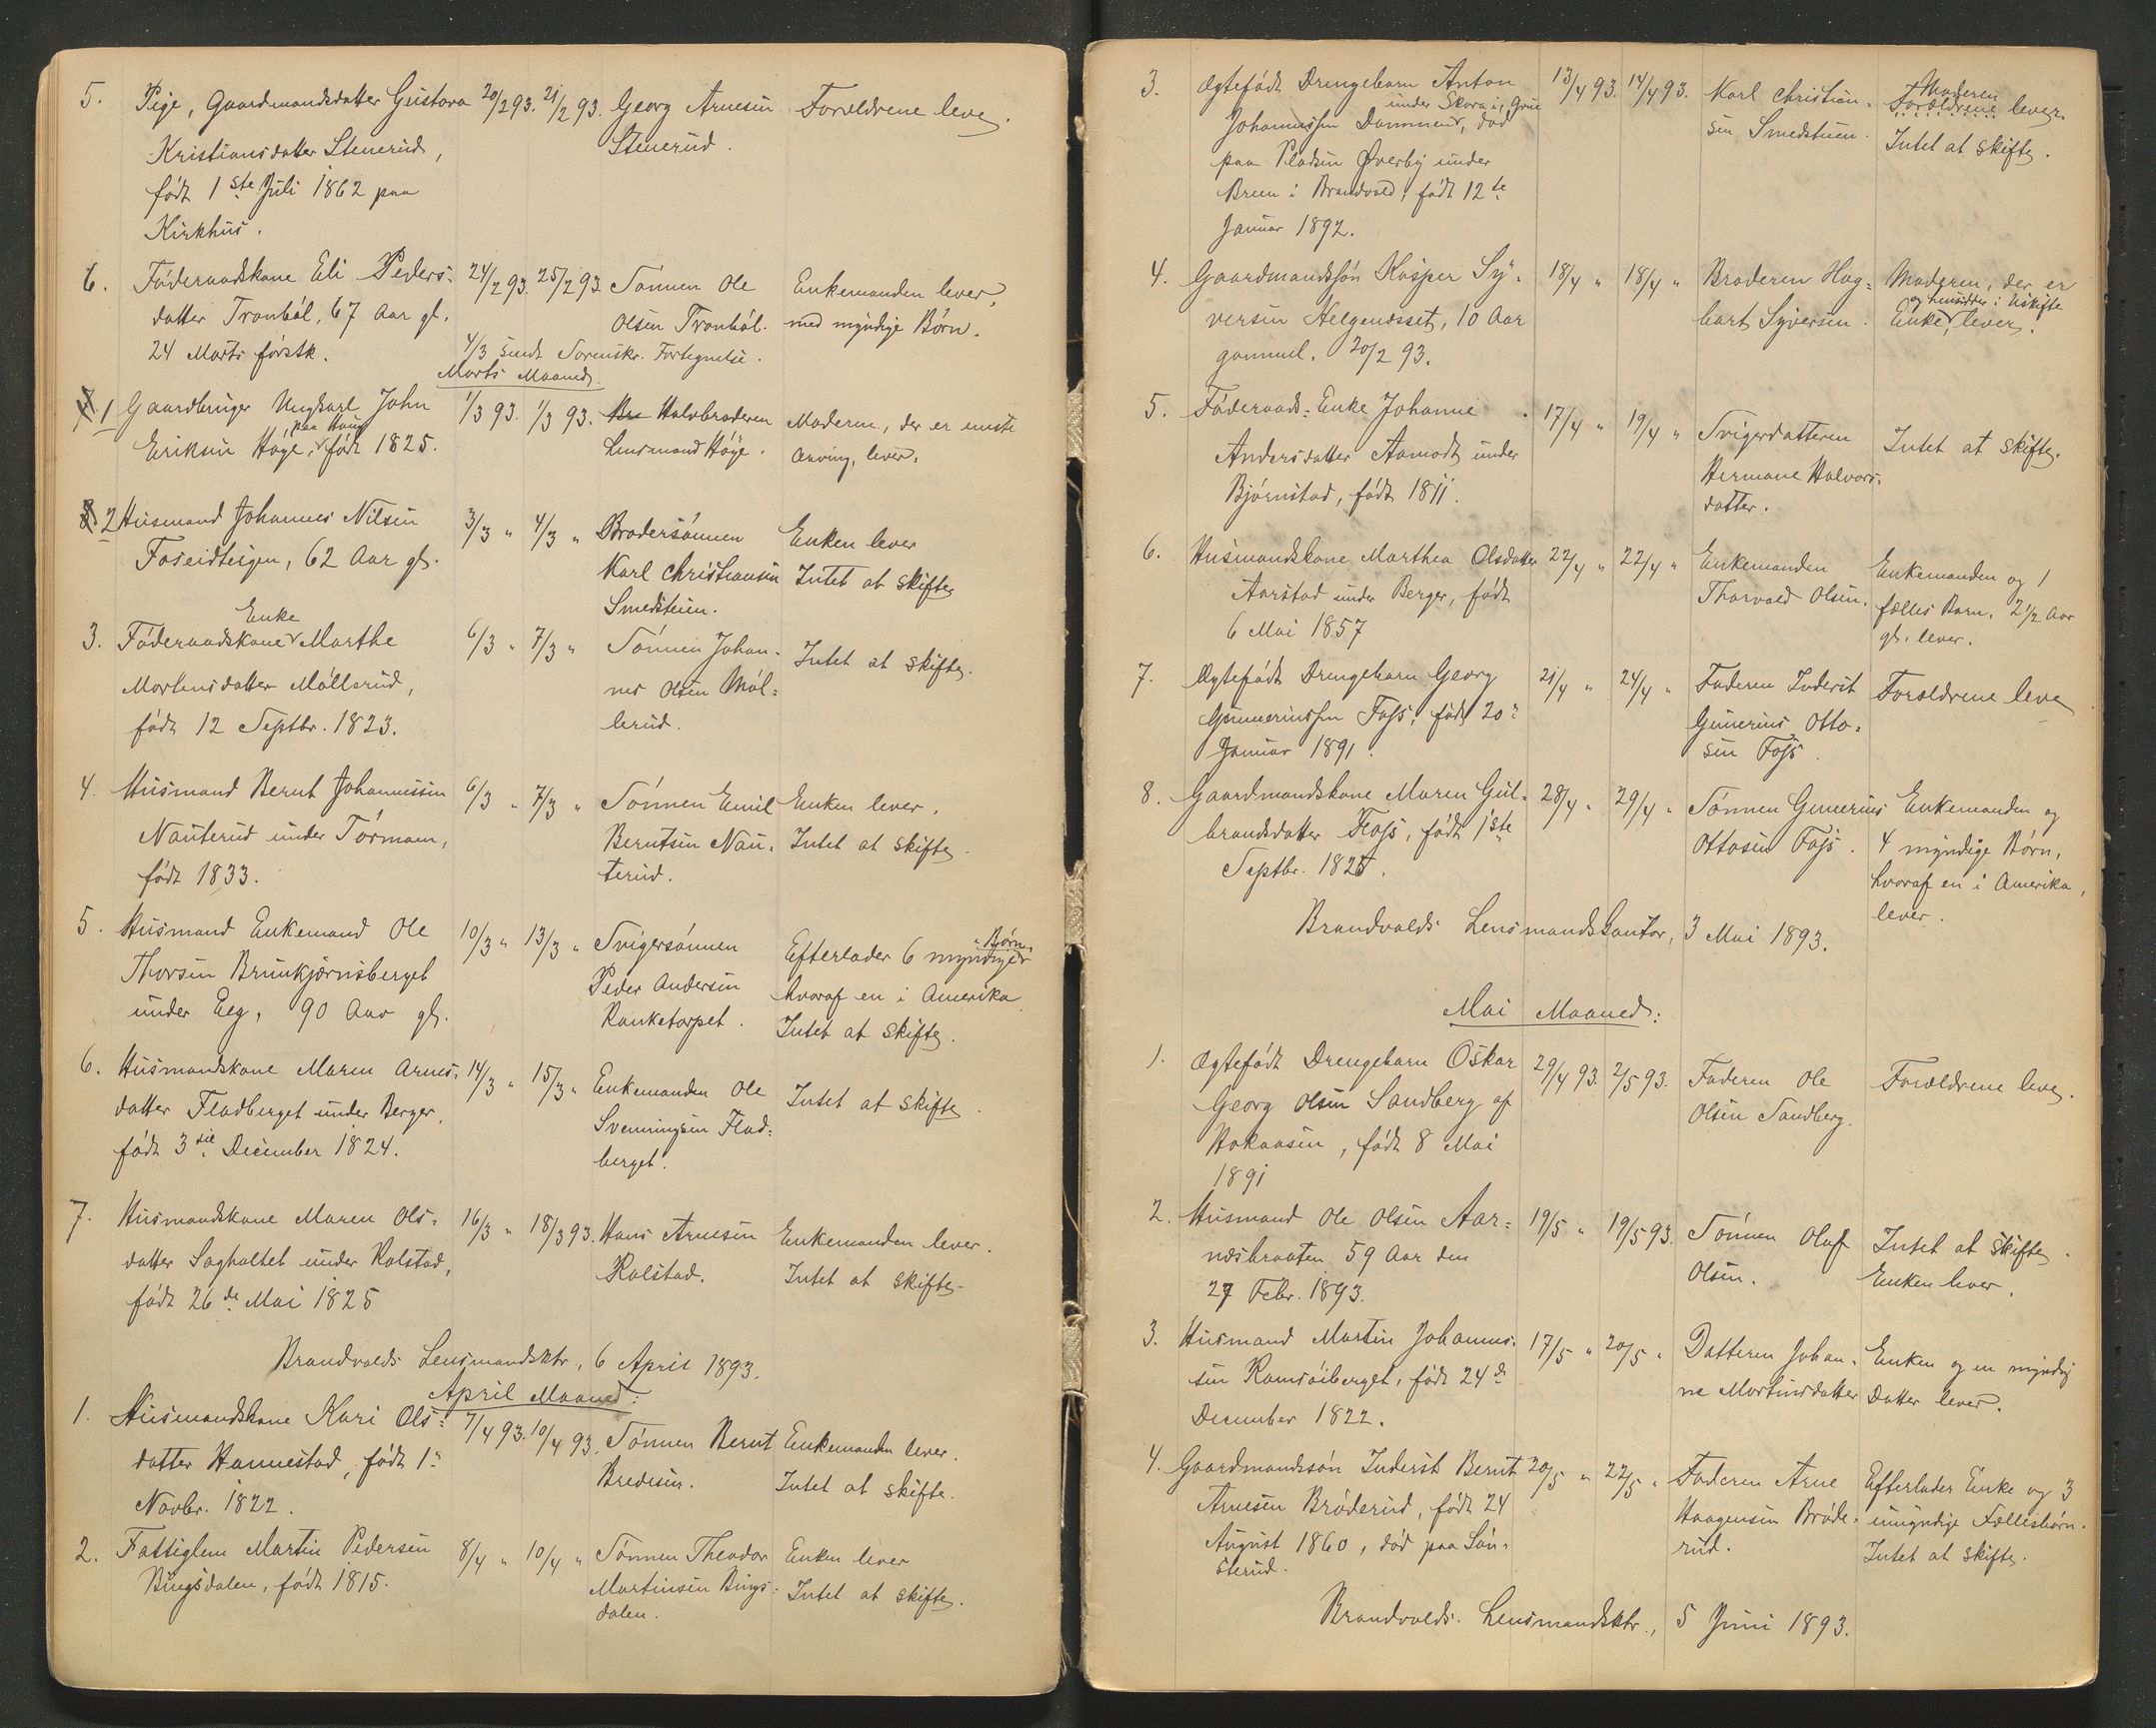 5. Pige, Gaardmandsdatter Gustava 20/2 93. 21/2 93. Georg Arnesen Forældrene leve.
Kristiansdatter Stenerud, Stenerud.
født 1ste Juli 1862 paa
Kirkhus.
6. Føderaadskone Eli Peders- 24/2 93. 25/2 93 Sønnen Ole Enkemanden lever,
datter Tronbøl, 67 Aar gl. Olsen Tronbøl. med myndige Børn.
24 Marts førstk. 4/3 sendt Sorenskr. Fortegnelse.
Marts Maaned.
7. 1 Gaardbruger Ungkarl John 1/3 93. 1/3 93. Bro Halvbroderen Moderen, der er eneste
paa Haug
Eriksen Høye, født 1825. Lensmand Høye. Arving, lever.
8. 2 Husmand Johannes Nilsen 3/3 " 4/3 " Brodersønnen Enken lever
Foseidteigen, 62 Aar gl. Karl Christiansen Intet at skifte
Smedstuen.
Enke
3. Føderaadskone Marthe 6/3 " 7/3 " Sønnen Johan- Intet at skifte.
Mortensdatter Møllerud, nes Olsen Møl-
født 12 Septbr. 1823. lerud.
4. Husmand Bernt Johannessen 6/3 " 7/3 " Sønnen Emil Enken lever.
Nauterud under Tørmoen, Berntsen Nau- Intet at skifte.
født 1833. terud.
5. Husmand Enkemand Ole 10/3 " 13/3 " Svigersønnen Efterlader 6 myndige Børn,
Thorsen Brunkjærnsberget Peder Andersen hvoraf en i Amerika
under Eeg, 90 Aar gl. Ranketorpet. Intet at skifte.
6. Husmandskone Maren Arnes- 14/3 " 15/3 " Enkemanden Ole Intet at skifte.
datter Fladberget under Berger, Svenningsen Flad-
født 3die December 1824. berget.
7. Husmandskone Maren Ols- 16/3 " 18/3 93. Hans Arnesen Enkemanden lever.
datter Sagholtet under Kolstad, Kolstad. Intet at skifte.
født 26de Mai 1825
Brandvolds Lensmandsktr., 6 April 1893.
April Maaned:
1. Husmandskone Kari Ols- 7/4 93. 10/4 93. Sønnen Bernt Enkemanden lever.
datter Hammestad, født 1: Bredesen. Intet at skifte.
Novbr. 1822.
2. Fattiglem Martin Pedersen 8/4 " 10/4 " Sønnen Theodor Enken lever
Bingsdalen, født 1815. Martinsen Bings- Intet at skifte.
dalen.
3. Ægtefødt Drengebarn Anton 13/4 93. 14/4 93. Karl Christian- Moderen
under Skara i Grue Forældrene lever.
Johannessen Dammen, død sen Smedstuen. Intet at skifte.
paa Pladsen Øverby under
Breen i Brandvold, født 12te
Januar 1892.
4. Gaardmandssøn Kasper Sy- 18/4 " 18/4 " Broderen Hag- Moderen, der er
og hensidder i Uskifte
versen Helgenæsset, 10 Aar bart Syversen. Enke, lever.
gammel. 20/2 93.
5. Føderaads-Enke Johanne 17/4 " 19/4 " Svigerdatteren Intet at skifte.
Andersdatter Aamodt under Hermane Halvors-
Bjørnstad, født 1811. datter.
6. Husmandskone Marthea Olsdatter 22/4 " 22/4 " Enkemanden Enkemanden og 1
Aarstad under Berger, født Thorvald Olsen. fælles Barn, 2 1/2 Aar
6 Mai 1857 gl. lever.
7. Ægtefødt Drengebarn Georg 21/4 " 24/4 " Faderen Inderst Forældrene leve
Gunneriussen Foss, født 20: Gunerius Otto-
Januar 1891. sen Foss.
8. Gaardmandskone Maren Gul- 28/4 " 29/4 " Sønnen Gunerius Enkemanden og
brandsdatter Foss, født 1ste Ottosen Foss. 4 myndige Børn,
Septbr. 1825. hvoraf en i Amerika,
lever.
Brandvolds Lensmandskontor, 3 Mai 1893.
Mai Maaned:
1. Ægtefødt Drengebarn Oskar 29/4 93. 2/5 93. Faderen Ole Forældrene leve.
Georg Olsen Sandberg af Olsen Sandberg.
Hokaasen, født 8 Mai
1891
2. Husmand Ole Olsen Aar- 19/5 " 19/5 93. Sønnen Oluf Intet at skifte.
næsbraaten 59 Aar den Olsen. Enken lever.
27 Febr. 1893.
3. Husmand Martin Johannes- 17/5 " 20/5 " Datteren Johan- Enken og en myndig
sen Ramsøiberget, født 24de ne Martinsdatter Datter lever.
December 1822.
4. Gaardmandssøn Inderst Bernt 20/5 " 22/5 " Faderen Arne Efterlader Enke og 3
Arnesen Brøderud, født 24 Haagensen Brøde- umyndige Fællesbørn.
August 1860, død paa Løn- rud. Intet at skifte.
sterud.
Brandvolds Lensmandsktr., 5 Juni 1893.